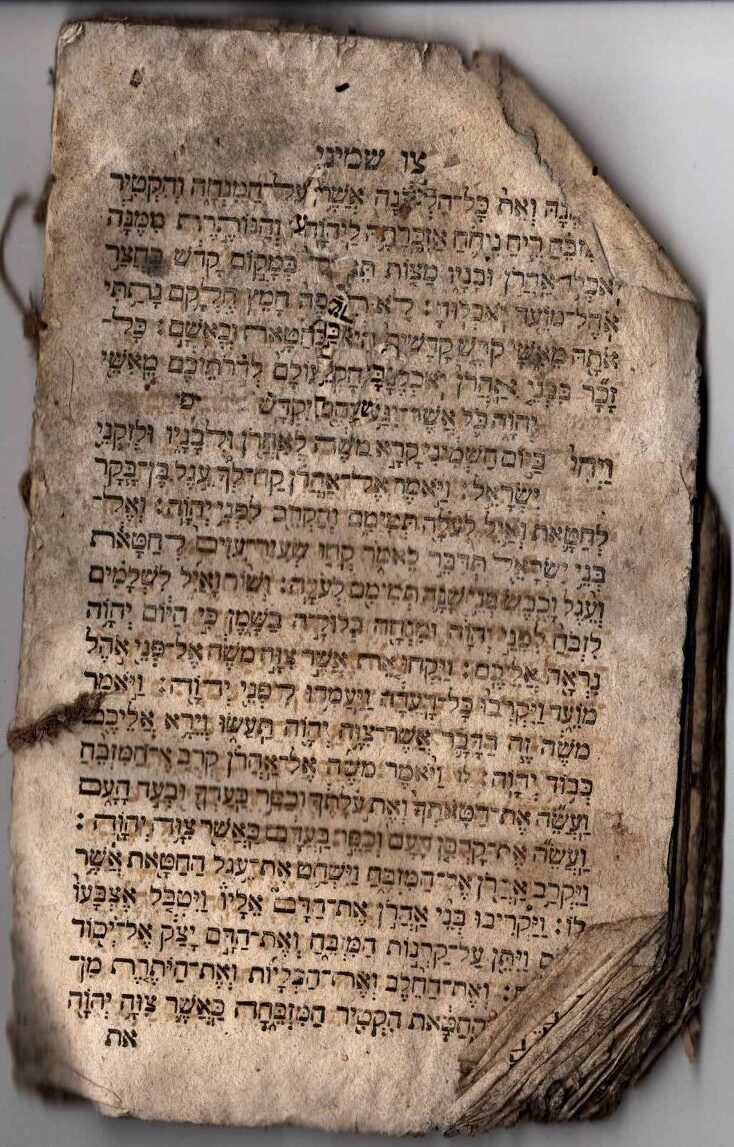 צו שמיני
וְאֵת כָּל־הַלְּבֹנָה אֲשֶׁר עַל־הַמִּנְחָה וְהִקְטִיר
רֵיחַ נִיחֹחַ אַזְכָּרָתָהּ לַיהוָה׃ וְהַנּוֹתֶרֶת מִמֶּנָּה
יֹאכְלוּ אַהֲרֹן וּבָנָיו מַצּוֹת בְּמָקוֹם קָדֹשׁ בַּחֲצַר
אֹהֶל־מוֹעֵד יֹאכְלוּהָ׃ לֹא חָמֵץ חֶלְקָם נָתַתִּי
אֹתָהּ מֵאִשָּׁי קֹדֶשׁ קָדָשִׁים הִיא כַּחַטָּאת וְכָאָשָׁם׃ כָּל־
זָכָר בִּבְנֵי אַהֲרֹן יֹאכְלֶנָּה חָק־עוֹלָם לְדֹרֹתֵיכֶם מֵאִשֵּׁי
יְהוָה כֹּל אֲשֶׁר־יִגַּע בָּהֶם יִקְדָּשׁ
וַיְהִי בַּיּוֹם הַשְּׁמִינִי קָרָא מֹשֶׁה לְאַהֲרֹן וּלְבָנָיו וּלְזִקְנֵי
יִשְׂרָאֵל׃ וַיֹּאמֶר אֶל־אַהֲרֹן קַח־לְךָ עֵגֶל בֶּן־בָּקָר
לְחַטָּאת וְאַיִל לְעֹלָה תְּמִימִם וְהַקְרֵב לִפְנֵי יְהוָה׃ וְאֶל־
בְּנֵי יִשְׂרָאֵל תְּדַבֵּר לֵאמֹר קְחוּ שְׂעִיר־עִזִּים לְחַטָּאת
וְעֵגֶל וָכֶבֶשׂ בְּנֵי־שָׁנָה תְּמִימִם לְעֹלָה׃ וְשׁוֹר וָאַיִל לִשְׁלָמִים
לִזְבֹּחַ לִפְנֵי יְהוָה וּמִנְחָה בְּלוּלָה בַשָּׁמֶן כִּי הַיּוֹם יְהוָה
נִרְאָה אֲלֵיכֶם׃ וַיִּקְחוּ אֵת אֲשֶׁר צִוָּה מֹשֶׁה אֶל־פְּנֵי אֹהֶל
מוֹעֵד וַיִּקְרְבוּ כָּל־הָעֵדָה וַיַּעַמְדוּ לִפְנֵי יְהוָה׃ וַיֹּאמֶר
מֹשֶׁה זֶה הַדָּבָר אֲשֶׁר־צִוָּה יְהוָה תַּעֲשׂוּ וְיֵרָא אֲלֵיכֶם
כְּבוֹד יְהוָה׃ לוי וַיֹּאמֶר מֹשֶׁה אֶל־אַהֲרֹן קְרַב אֶל־הַמִּזְבֵּחַ
וַעֲשֵׂה אֶת־חַטָּאתְךָ וְאֶת־עֹלָתֶךָ וְכַפֵּר בַּעַדְךָ וּבְעַד הָעָם
וַעֲשֵׂה אֶת־קָרְבַּן הָעָם וְכַפֵּר בַּעֲדָם כַּאֲשֶׁר צִוָּה יְהוָה׃
וַיִּקְרַב אַהֲרֹן אֶל־הַמִּזְבֵּחַ וַיִּשְׁחַט אֶת־עֵגֶל הַחַטָּאת אֲשֶׁר־
לוֹ׃ וַיַּקְרִיבוּ בְּנֵי אַהֲרֹן אֶת־הַדָּם אֵלָיו וַיִּטְבֹּל אֶצְבָּעוֹ
וַיִּתֵּן עַל־קַרְנוֹת הַמִּזְבֵּחַ וְאֶת־הַדָּם יָצַק אֶל־יְסוֹד
וְאֶת־הַחֵלֶב וְאֶת־הַכְּלָיֹת וְאֶת־הַיֹּתֶרֶת מִן־
הַחַטָּאת הִקְטִיר הַמִּזְבֵּחָה כַּאֲשֶׁר צִוָּה יְהוָה
את